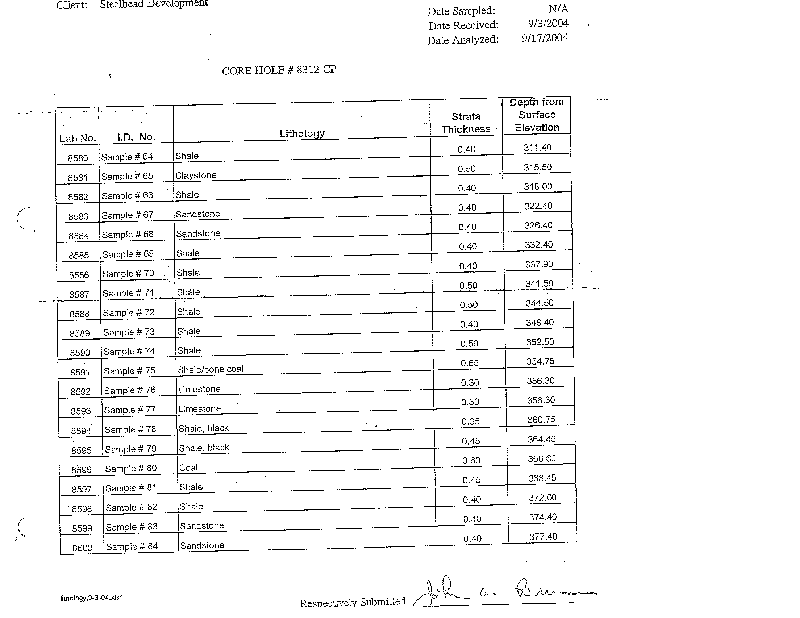 Client: Steelhead Development
Date Sampled: N/A
Date Received: 9/3/2004
Date Analyzed: 9/17/2004
CORE HOLE # 8312
Lab No. I.D. No. Lithology Strata Thickness Depth from Surface Elevation
8580 Sample # 64 Shale 0.40 311.40
8581 Sample # 65 Claystone 0.50 315.50
8582 Sample # 66 Shale 0.40 318.00
8583 Sample # 67 Sandstone 0.40 322.40
8584 Sample # 68 Sandstone 0.40 326.40
8585 Sample # 69 Shale 0.40 332.40
8586 Sample # 70 Shale 0.40 337.90
8587 Sample # 71 Shale 0.50 341.50
8588 Sample # 72 Shale 0.50 344.50
8589 Sample # 73 Shale 0.40 348.40
8590 Sample # 74 Shale 0.50 352.50
8591 Sample # 75 Shale/bone coal 354.75
8592 Sample # 76 Limestone 0.30 356.30
8593 Sample # 77 Limestone 0.30 358.30
8594 Sample # 78 Shale, black 0.35 360.75
8595 Sample # 79 Shale, black 0.45 364.45
8596 Sample # 80 Coal
8597 Sample # 81 Shale 0.45
8598 Sample # 82 Shale 0.40 372.00
8599 Sample # 83 Sandstone 0.40 374.40
8600 Sample # 84 Sandstone 0.40 377.40
Respectively Submitted